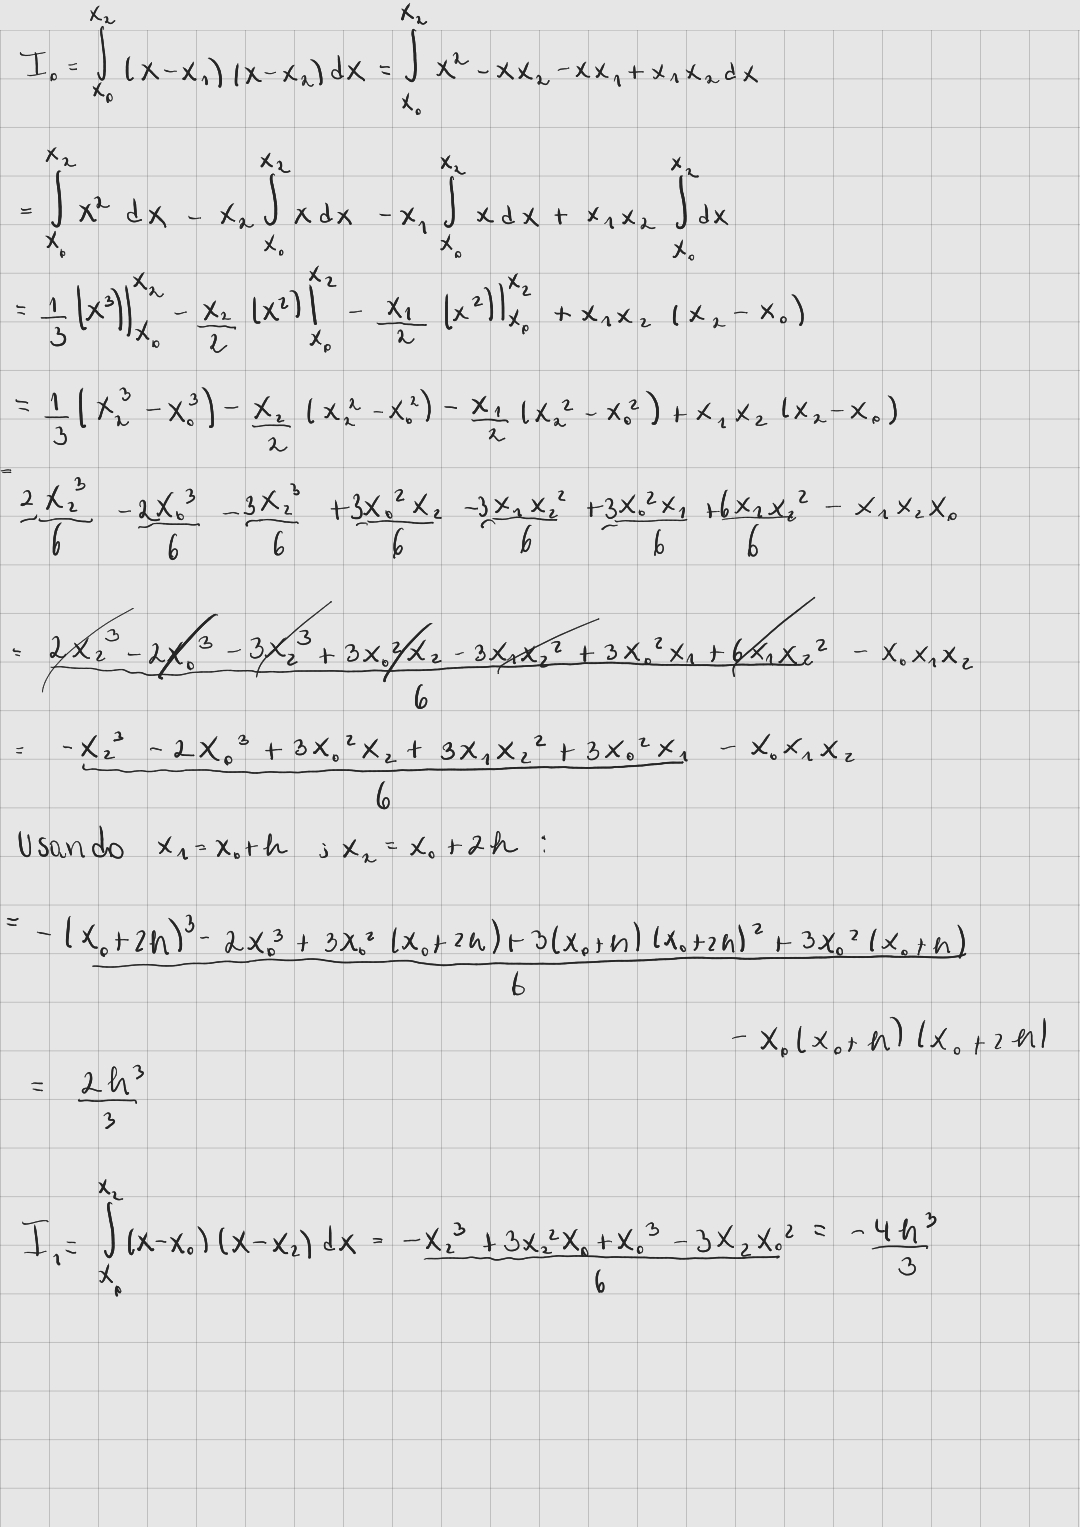 I₀ = ∫_{x₀}^{x₂} (x-x₁)(x-x₂) dx = ∫_{x₀}^{x₂} x² - xx₂ - xx₁ + x₁x₂ dx
= ∫_{x₀}^{x₂} x² dx - x₂ ∫_{x₀}^{x₂} x dx - x₁ ∫_{x₀}^{x₂} x dx + x₁x₂ ∫_{x₀}^{x₂} dx
= 1/3 (x³)|_{x₀}^{x₂} - x₂/2 (x²)|_{x₀}^{x₂} - x₁/2 (x²)|_{x₀}^{x₂} + x₁x₂ (x₂ - x₀)
= 1/3 (x₂³ - x₀³) - x₂/2 (x₂² - x₀²) - x₁/2 (x₂² - x₀²) + x₁x₂ (x₂ - x₀)
= 2x₂³/6 - 2x₀³/6 - 3x₂³/6 + 3x₀²x₂/6 - 3x₁x₂²/6 + 3x₀²x₁/6 + 6x₁x₂²/6 - x₁x₂x₀
= (2x₂³ - 2x₀³ - 3x₂³ + 3x₀²x₂ - 3x₁x₂² + 3x₀²x₁ + 6x₁x₂²)/6 - x₀x₁x₂
= (-x₂³ - 2x₀³ + 3x₀²x₂ + 3x₁x₂² + 3x₀²x₁)/6 - x₀x₁x₂
Usando x₁ = x₀+h ; x₂ = x₀+2h :
= (-(x₀+2h)³ - 2x₀³ + 3x₀²(x₀+2h) + 3(x₀+h)(x₀+2h)² + 3x₀²(x₀+h))/6
- x₀(x₀+h)(x₀+2h)
= 2h³/3
I₁ = ∫_{x₀}^{x₂} (x-x₀)(x-x₂) dx = (-x₂³ + 3x₂²x₀ + x₀³ - 3x₂x₀²)/6 = -4h³/3